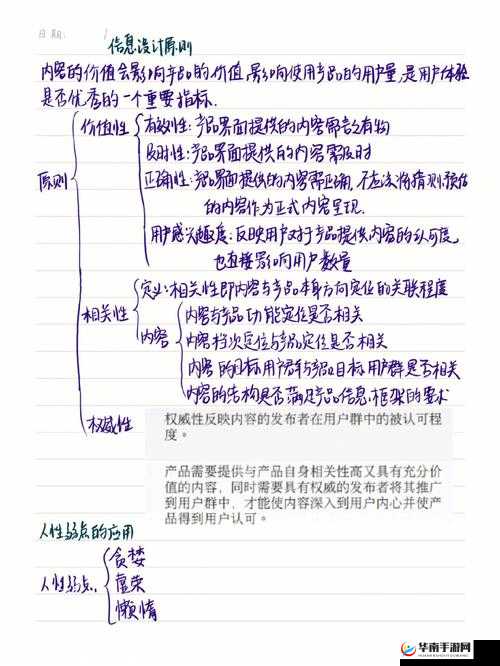 日期:
信息设计原则
内容的价值会影响产品的价值,影响使用产品的用户量,是用户体验
是否优秀的一个重要指标.
原则
价值性
有效性:产品界面提供的内容需言之有物
及时性:产品界面提供的内容需及时
正确性:产品界面提供的内容需正确,不应该将猜测、预估
的内容作为正式内容呈现.
用户感兴趣度:反映用户对产品提供内容的认可度,
也直接影响用户数量
相关性
定义:相关性即内容与产品本身方向定位的关联程度
内容
内容与产品功能定位是否相关
内容档次定位与产品定位是否相关
内容的目标用户群与产品目标用户群是否相关
内容的结构是否满足产品信息框架的要求
权威性
权威性反映内容的发布者在用户群中的被认可程
度。
产品需要提供与产品自身相关性高又具有充分价
值的内容，同时需要具有权威的发布者将其推广
到用户群中，才能使内容深入到用户内心并使产
品得到用户认可。
人性弱点的应用
人性弱点
贪婪
虚荣
懒惰
华南手游网